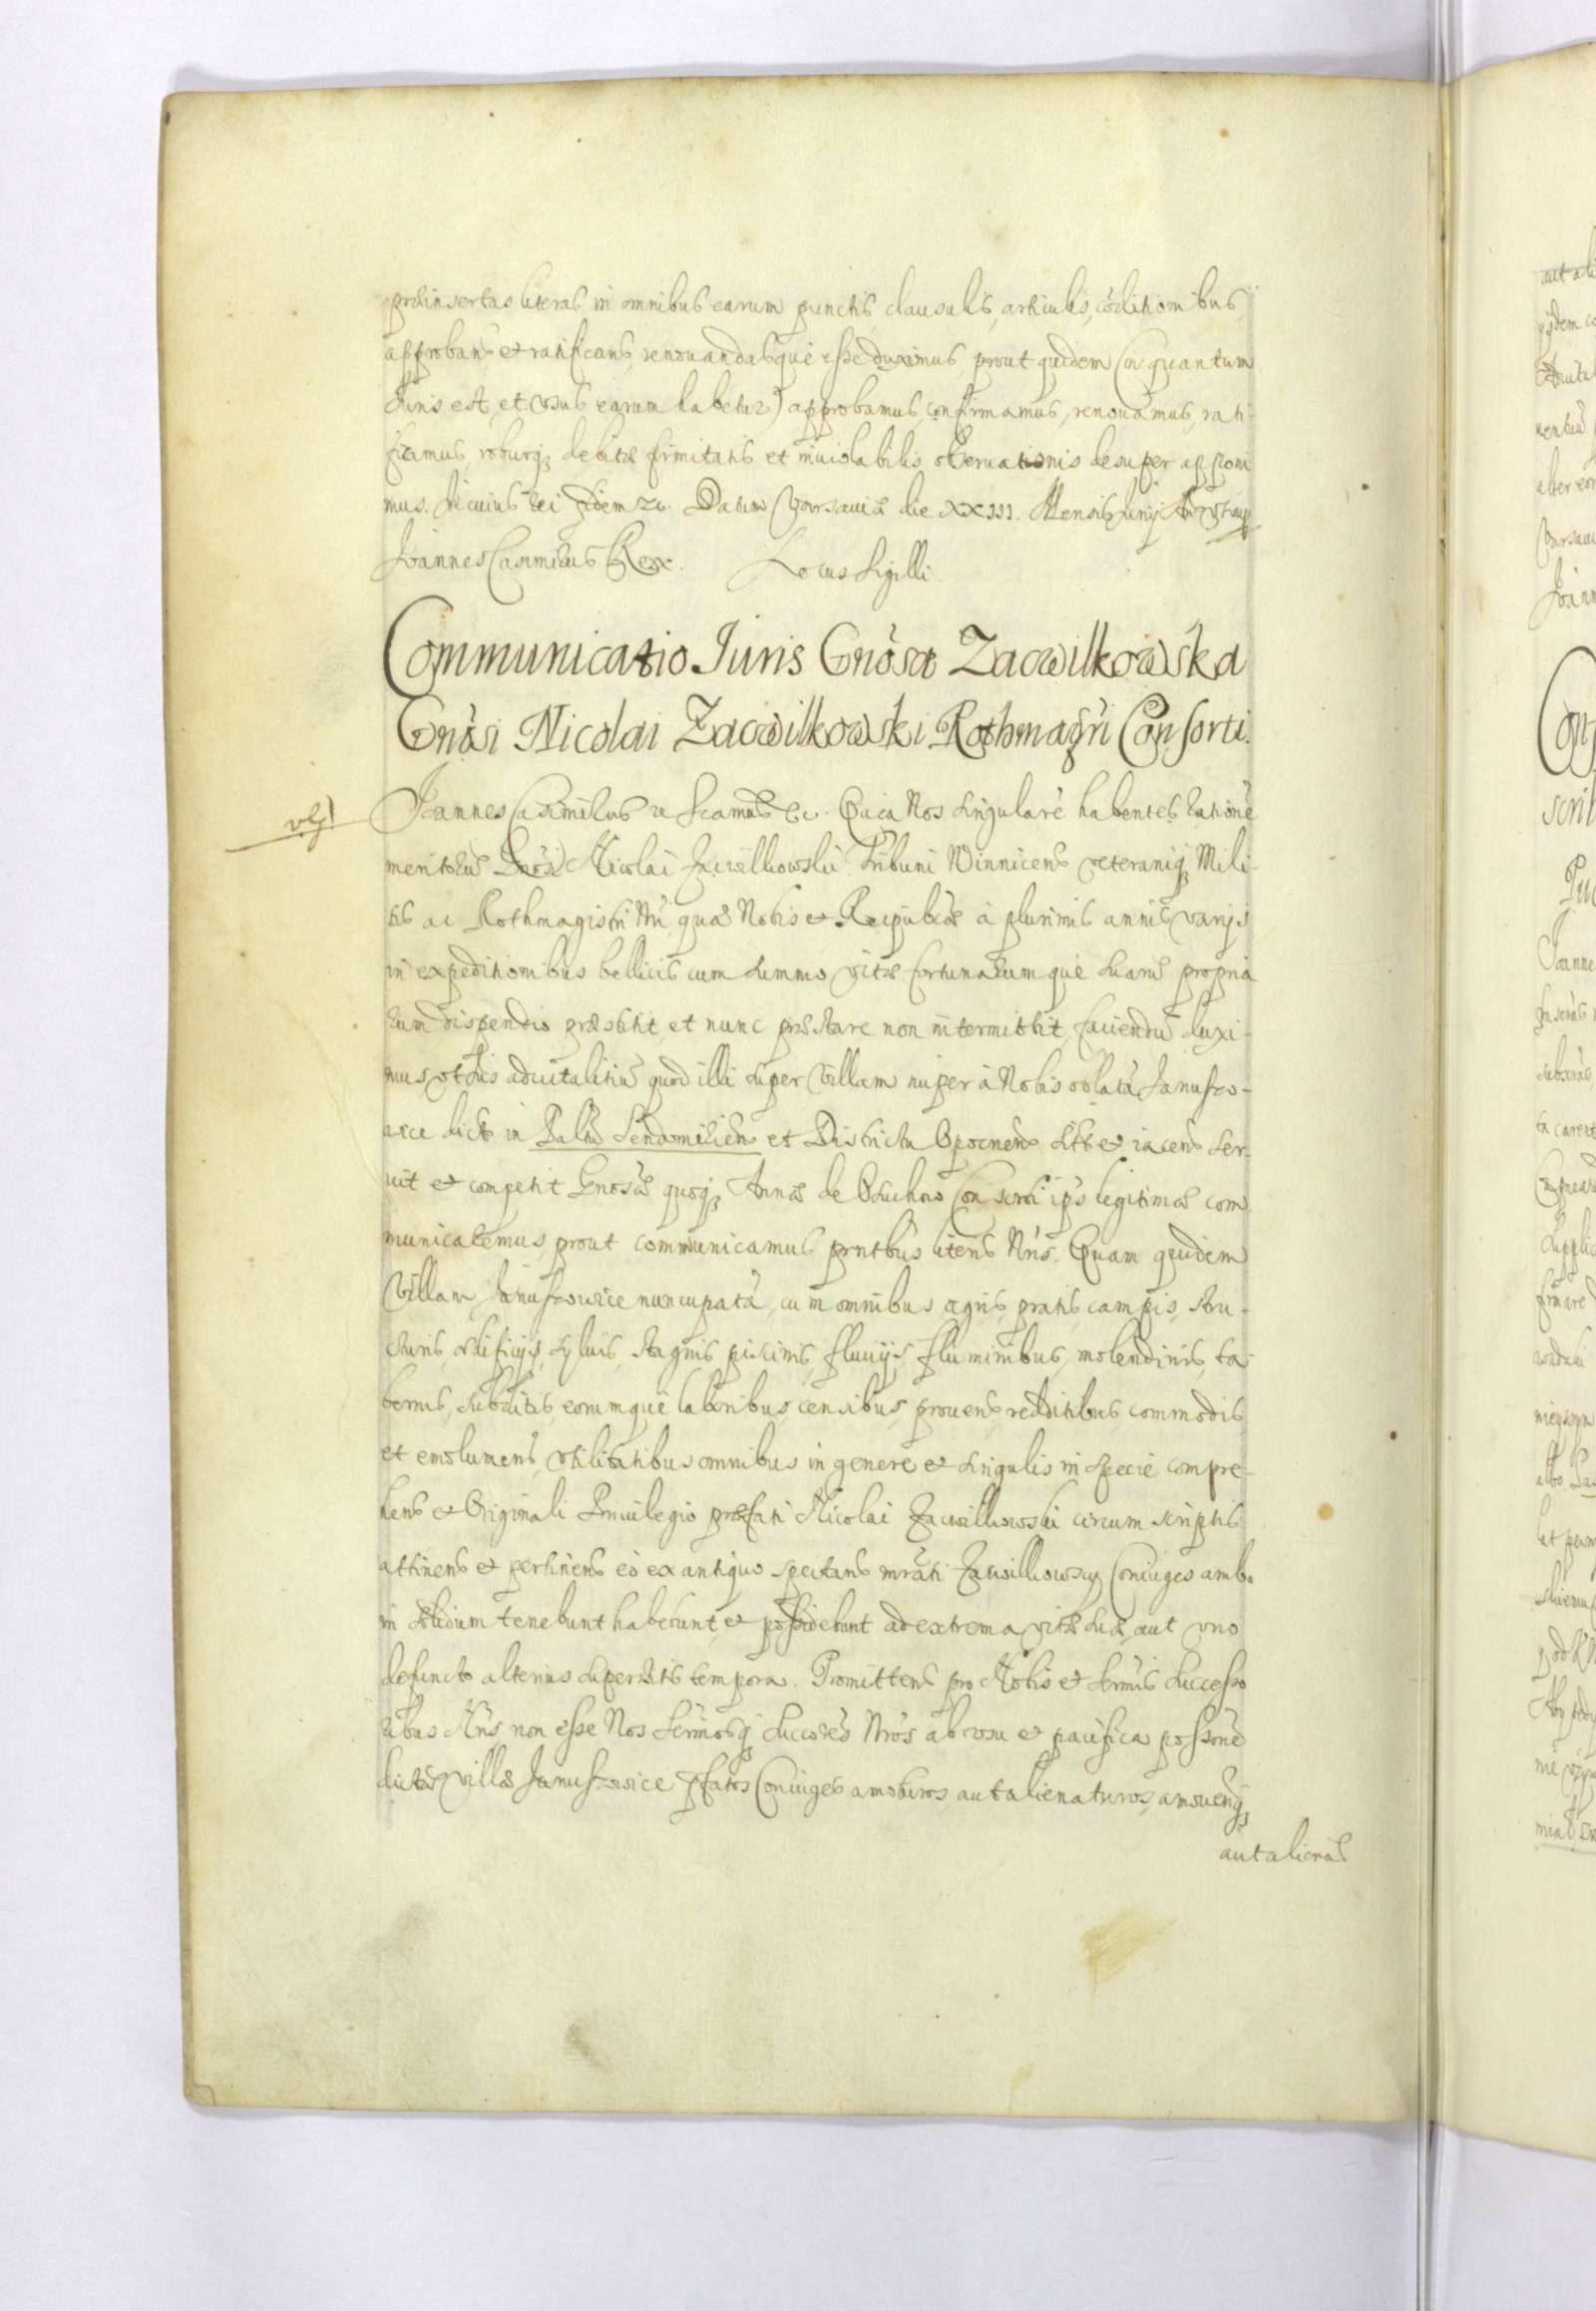 præinsertas literas in omnibus earum punctis, clausulis, articulis, cõditionibus,
approbans et ratificans, renouandasque esse duximus, prout quidem (in quantum
Iuris est, et vsus earum habetur) approbamus, confirmamus, renouamus, rati-
ficamus, roburq debitæ firmitatis et inuiolabilis obseruationis desuper apponi
mus. In cuius rei fidem Datum Varsauiæ die XXIII. Mensis Iunij
Joannes Casimirus Rex. Locus Sigilli.
Communicatio Iuris Gnosæ Zacwilkowska
Gnosi Nicolai Zacwilkowski Rothmagri Consorti.
Joannes Casimirus Quia Nos singularẽ habentes rationẽ
meritorũ Gnosi Nicolai Zacwilkowski Tribuni Winnicens veteraniq Mili-
tis ac Rothmagistri Nri, quæ Nobis et Reipublcæ à plurimis annis varijs
in expeditionibus bellicis cum summo vitæ fortunarumque suarũ propria
rum dispendio præstitit, et nunc præstare non intermittit, faciendũ duxi-
mus vt Ius aduitalitiũ quod illi super Villam nuper à Nobis collatã Januszo-
wice dict in Palatũ Sendomiriens et Districtu Opocnens sit et iacens ser-
uit et competit Gnosæ quoq Annæ de Consorti ips legitimæ com
municaremus, prout communicamus prntbus litens Nris. Quam quidem
Villam Januszowice nuncupatã, cum omnibus agris, pratis, campis, stru-
cturis, ædificijs, syluis, stagnis, piscinis, fluuijs, fluminibus, molendinis, ta-
bernis, subditis, eorumque laboribus, censibus, prouens, redditibus, commodis
et emolumens, vtilitatibus omnibus in genere et singulis in specie compre-
hens et Originali Priuilegio præfati Nicolai Zacwilkowski circumscriptis
attinens et pertinens eò ex antiquo spectans mrãti Zacwilkowscy Coniuges ambo
in solidum tenebunt habebunt, et possidebunt ad extrema vitæ suæ, aut vno
defuncto alterius superstitis tempora. Promittens pro Nobis et Sermis Successo
ribus Nris, non esse Nos Sermosq Succores Nros ab vsu et pacifica possone
dictæ villæ Januszowice pfatos Coniuges amoturos, aut alienaturos, amouendq
aut alienãd